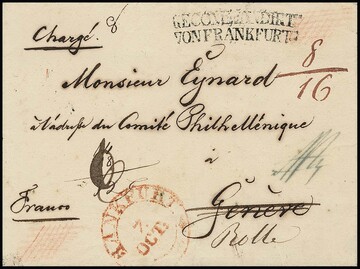 Chargé.
RECOMMANDIRT
VON FRANKFURT.
8
16
Monsieur Eynard
à l'adresse du Comité Philhellénique
à
Franco
Genève
Rolle
FRANKFURT
7
OCT.